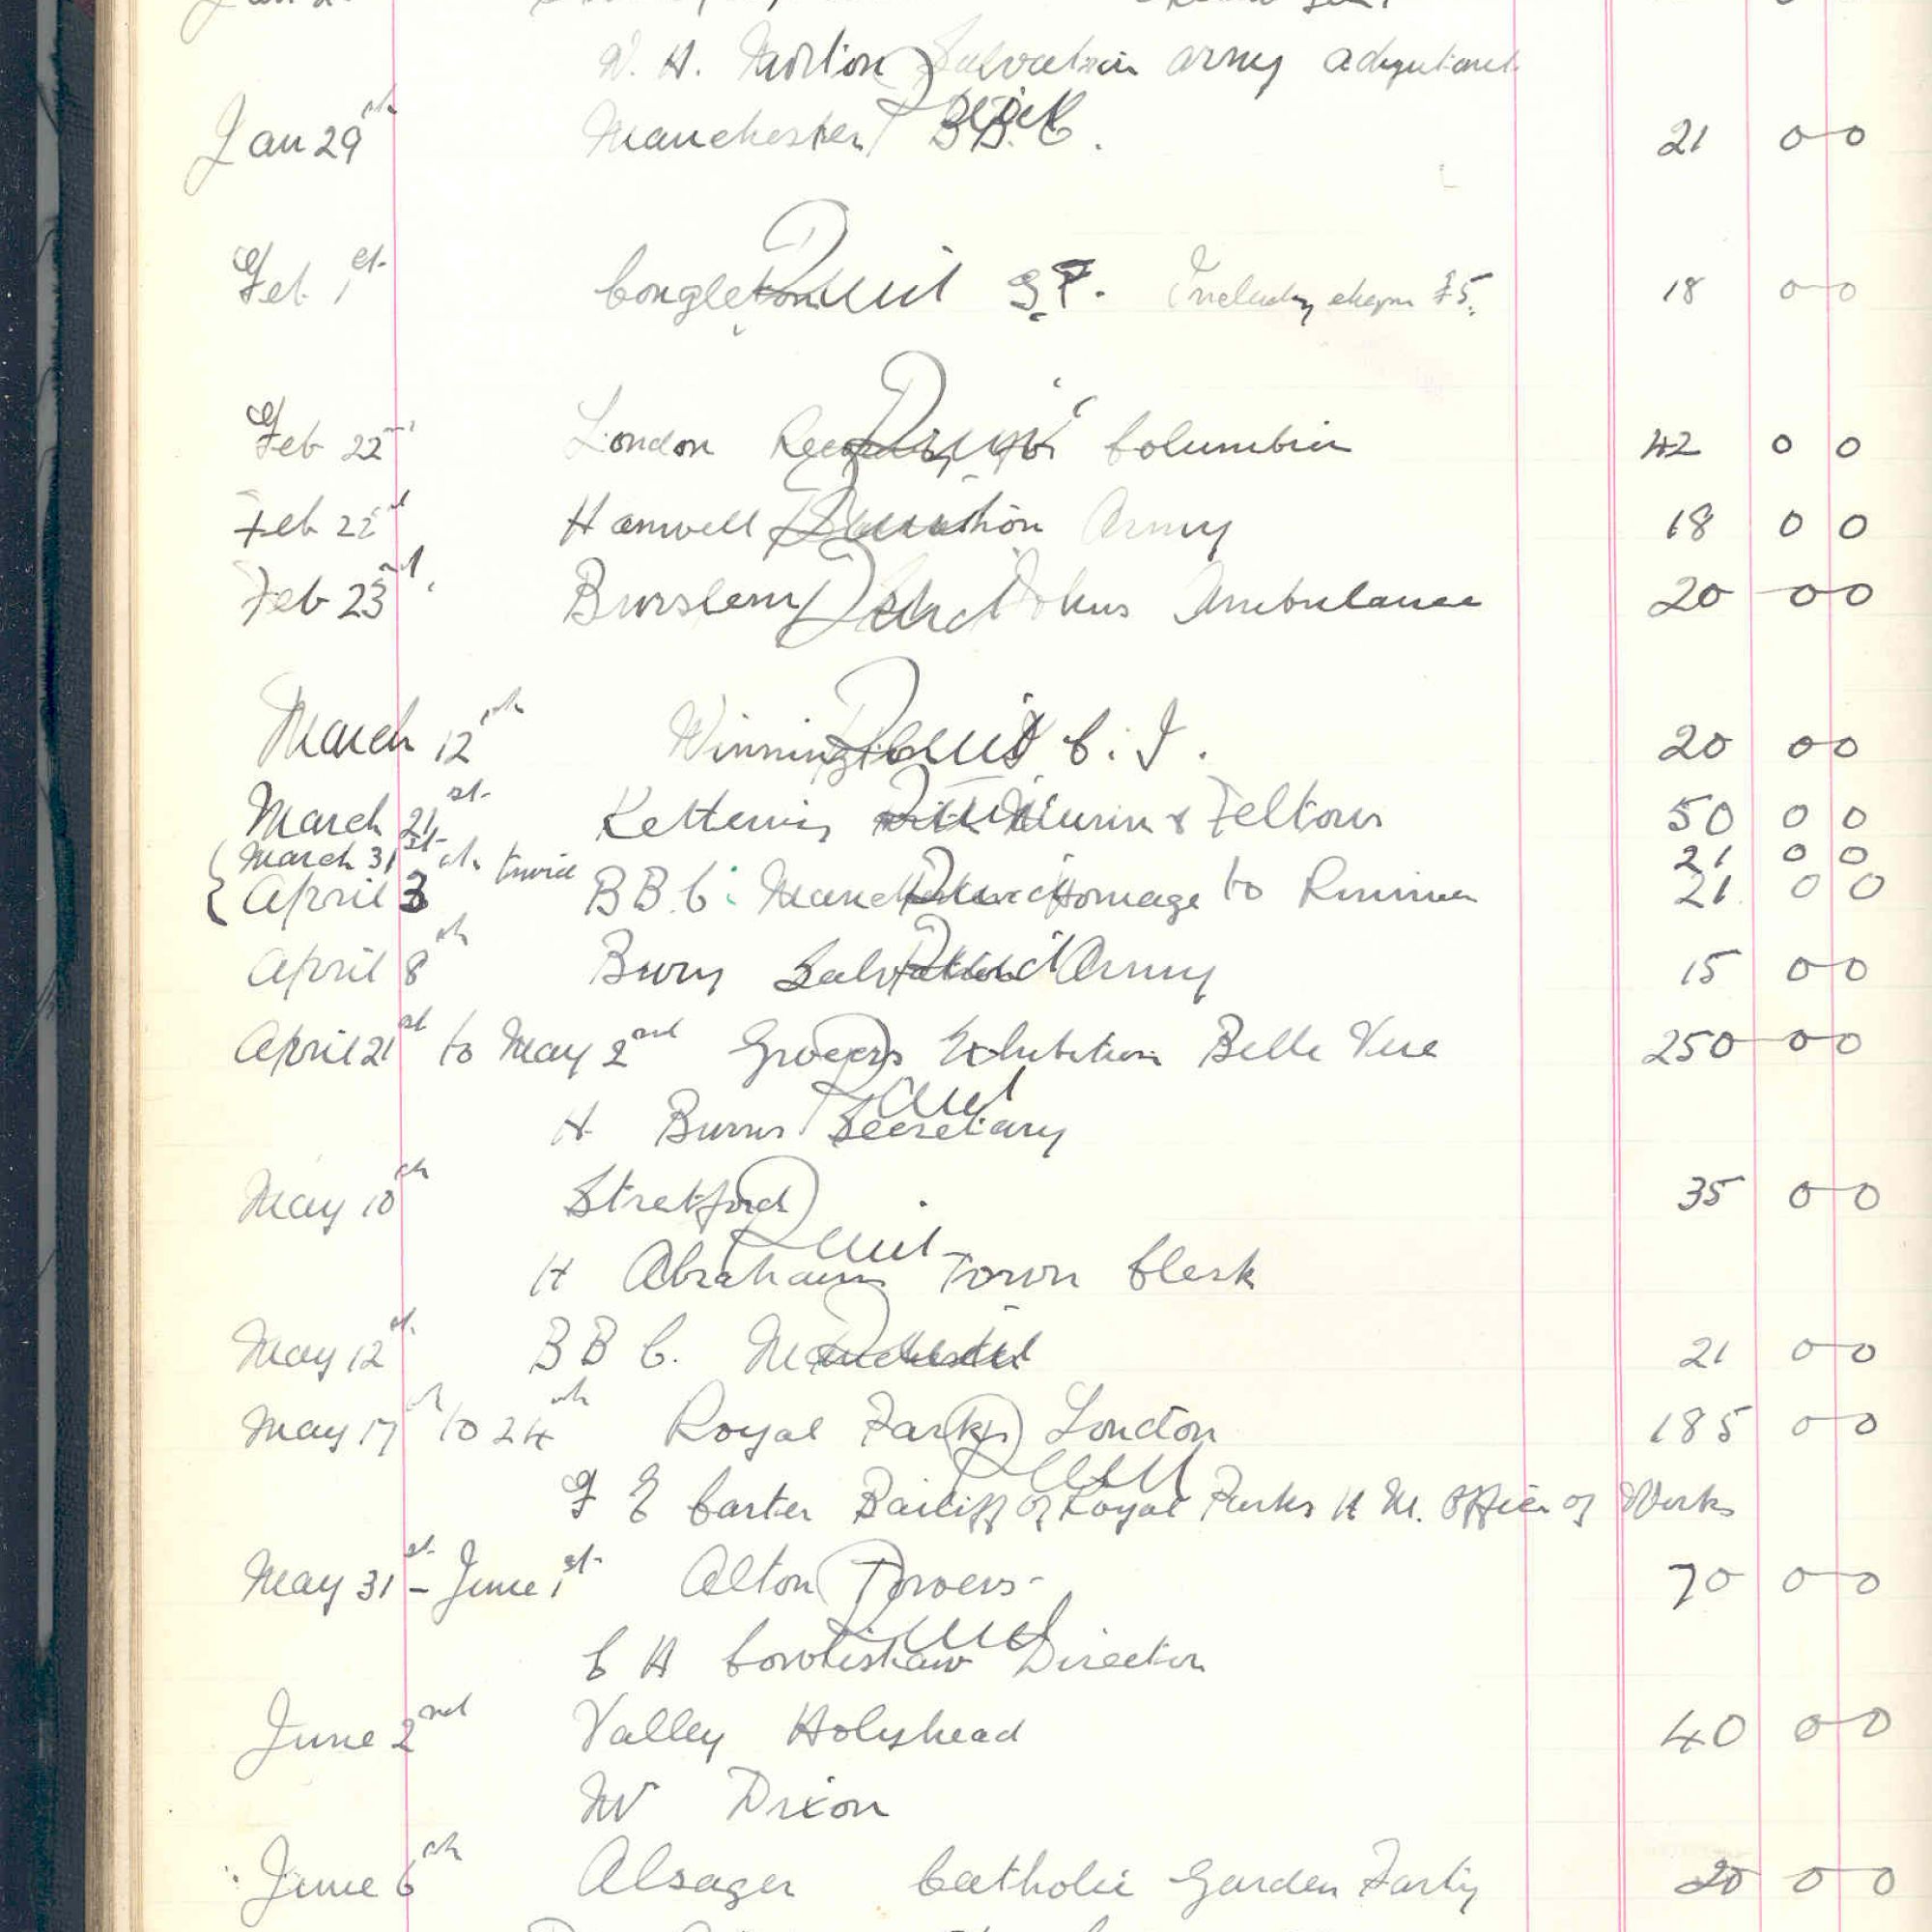 W. H. Morton Salvation army adgutant
Jan 29th Manchester B.B.C. Paid 21 0 0
Feb 1st Congleton Paid G.F. Includy 5. 18 0 0
Feb 22nd London Paid Columbia 42 0 0
Feb 22nd Hanwell Salvation Army Paid 18 0 0
Feb 23rd Burslem Paid Johns Ambulance 20 0 0
March 12th Winnington Paid C. I. 20 0 0
March 21st Kettering Paid Munn & Feltons 50 0 0
March 31st 21 0 0
April 3 B B.C. Manchester Paid Homage to 21 0 0
April 8th Bury Salvation Army Paid 15 0 0
April 21st to May 2nd Grocers Exhibition Belle Vue 250 0 0
Paid
H Burns Secretary
May 10th Stretford 35 0 0
Paid
H Abrahams Town Clerk
May 12th B B C. Manchester Paid 21 0 0
May 17th to 24th Royal Parks London 185 0 0
Paid
E Carter Bailiff of Royal Parks H M. Office of Works
May 31st - June 1st Alton Towers 70 0 0
Paid
C H Cowlishaw Director
June 2nd Valley Holyhead 40 0 0
Mr Dixon
June 6th Alsager Catholic Garden Party 20 0 0